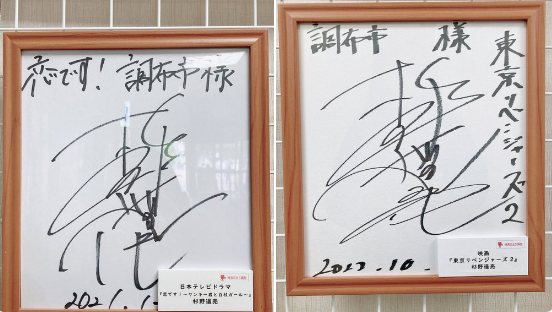 恋です! 調布市様
2021.1
日本テレビドラマ
『恋です!～ヤンキー君と白杖ガール～』
杉野遥亮
調布市 様
東京リベンジャーズ2
2022.10.
映画
『東京リベンジャーズ2』
杉野遥亮